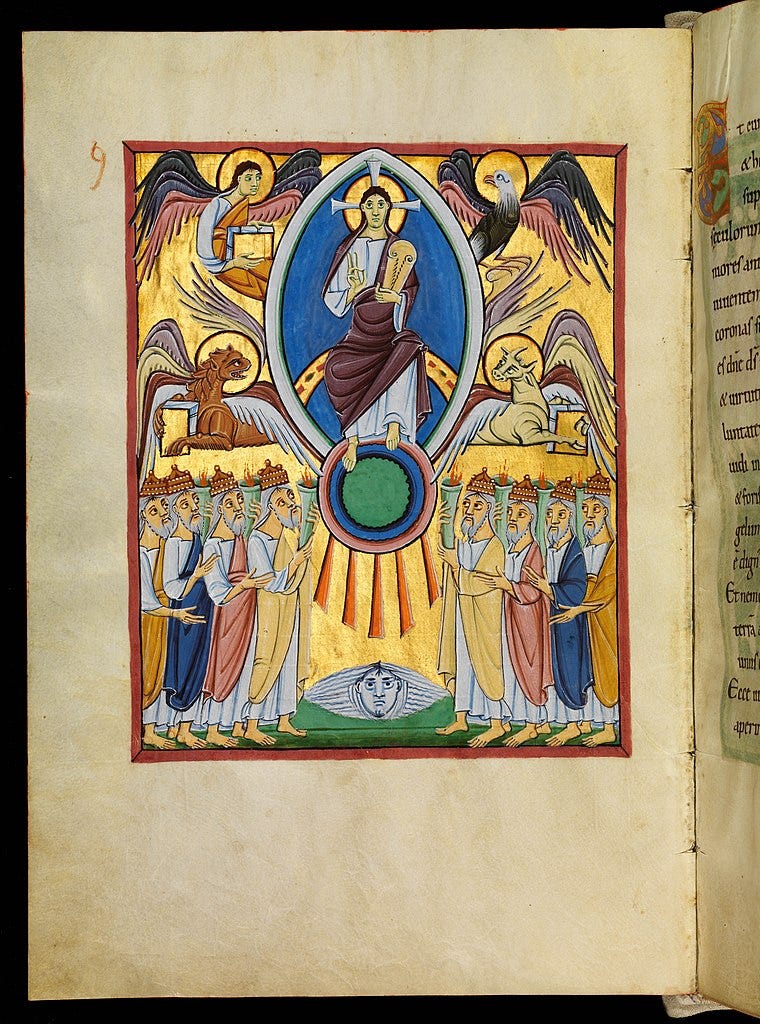 9
t cu
& h
sup
seculorum
mores ant
uiuentem
coronas
es dñe ds
& uirtut
luntate
uidi in
& foris
gelum
ē dign
Et nem
terrā
unus
Ecce
aperi